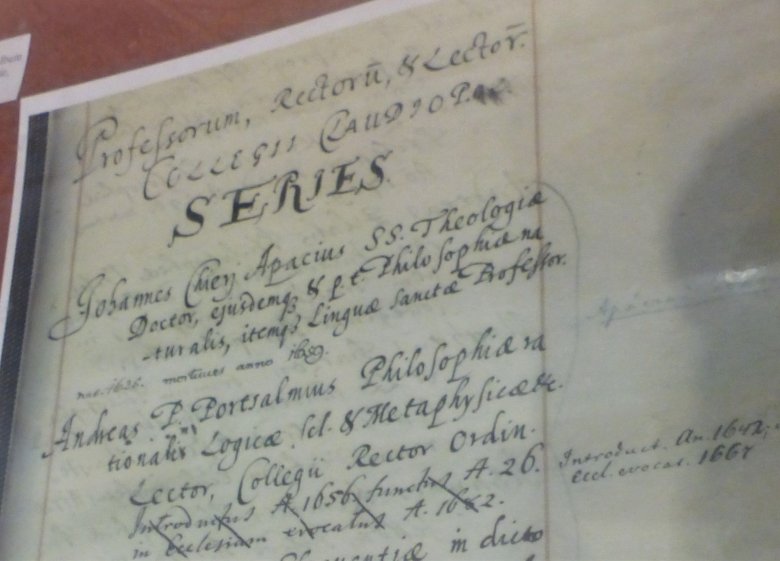 Professorum, Rectorū, & Lector̄.
COLLEGII CLAUDIOP.
SERIES
Johannes Cherj Apacius SS. Theologiæ
Doctor, ejusdemq; & p.t. Philosophiæ na
turalis, itemq; Linguæ Sanctæ Professor.
mortuus anno 1659.
Andreas P. Porcsalmius Philosophiæ ra
tionalis Logicæ scl. & Metaphysicæ &c.
Lector, Collegii Rector Ordin.
Introductus A. 1656 functus A. 26.
in Ecclesiam evocatus A. 1662.
Introduct. An. 1642;
Eccl. evocat. 1667
in dicto